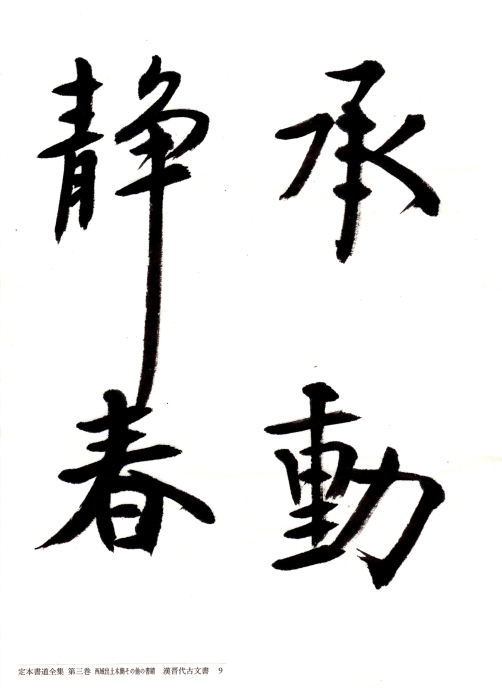 承動
静春
定本書道全集 第三巻 西域出土木簡その他の書蹟 漢晋代古文書 9